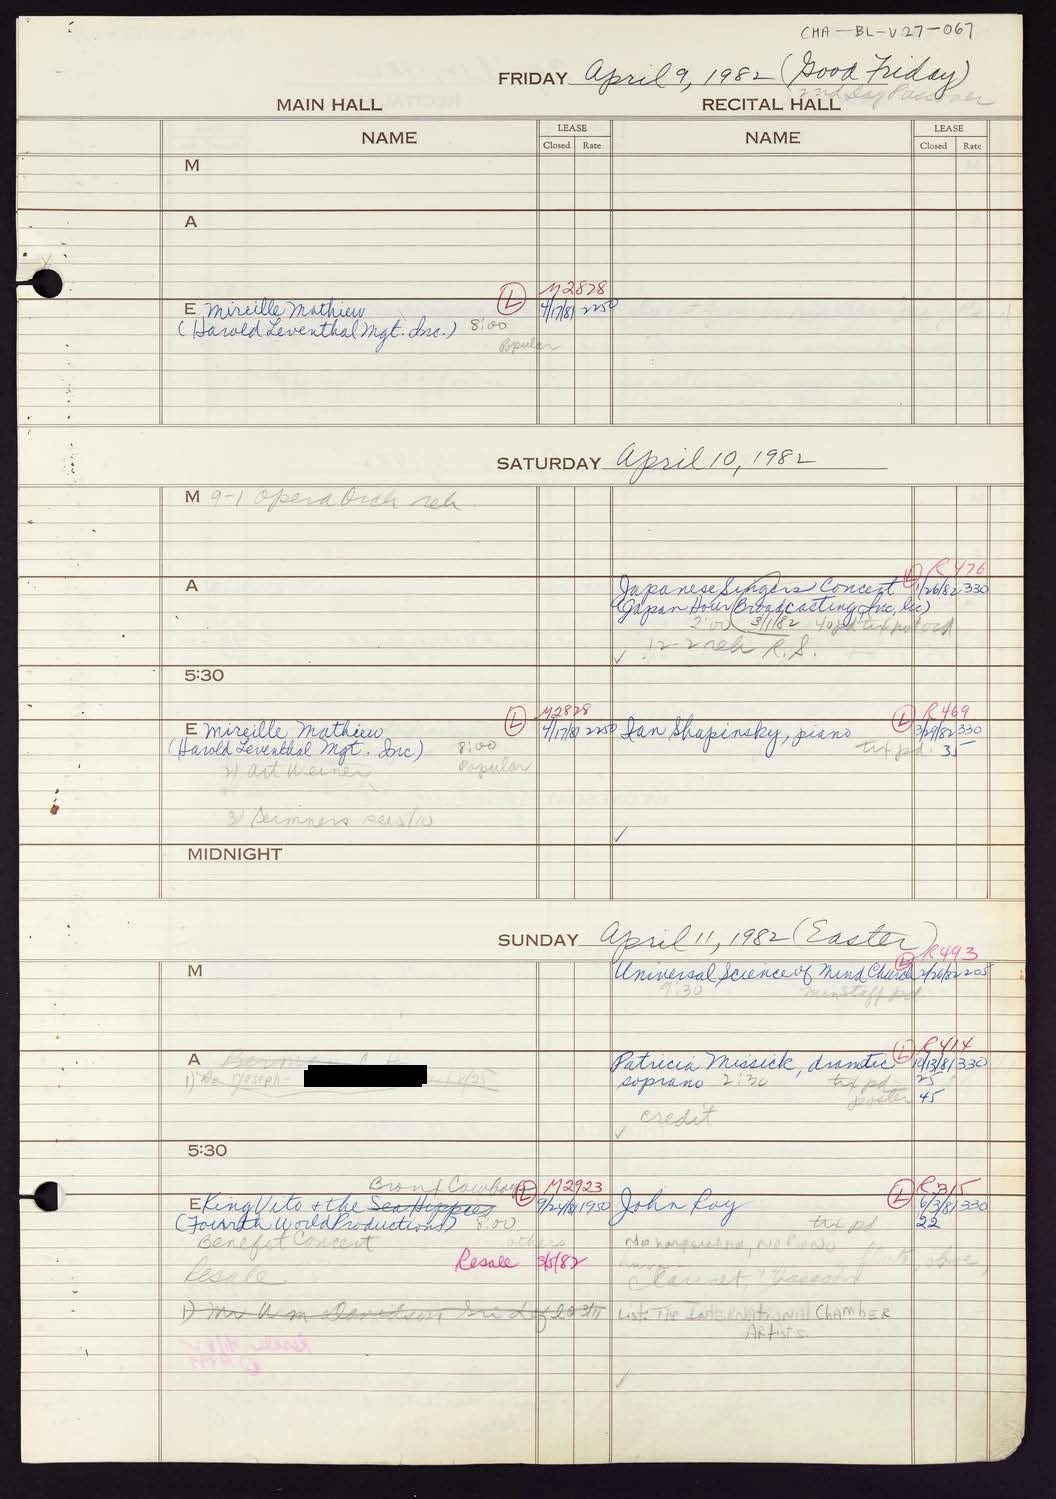 CHA-BL-V27-067
FRIDAY April 9, 1982 (Good Friday)
2nd Day Passover
MAIN HALL RECITAL HALL
NAME LEASE NAME LEASE
Closed Rate Closed Rate
M
A
L M2878
E Mireille Mathieu 4/17/81 2250
(Harold Leventhal Mgt. Inc.) 8:00
Popular
SATURDAY April 10, 1982
M 9-1 Opera Orch reh
L R476
A Japanese Singers Concert 1/26/82 330
(Japan Hour Broadcasting, Inc,
2:00 3/1/82
✓ 12-2 reh R.S.
5:30
L M2878 L R469
E Mireille Mathieu 4/17/81 2250 Ian Shapinsky, piano 3/29/82 330
(Harold Leventhal Mgt. Inc) 8:00 tix pd. 35
1) Art Weiner Popular
3)
✓
MIDNIGHT
SUNDAY April 11, 1982 (Easter)
L R493
M Universal Science of Mind Church 2/26/82 205
9:30 min staff pd.
L R414
A Berman C H Patricia Missick, dramtic 10/13/81 330
1) soprano 2:30 tix pd 25
poster 45
credit
✓
5:30
Bronx Cowboys L M2923 L R315
E King Vito + the Sea Hippies 9/24/81 1950 John Ray 6/3/81 330
(Fourth World Productions) 8:00 tix pd 22
Benefit Concert others No harpsichord, no piano
Resale 3/5/82 flute, oboe,
Resale clarinet, bassoon
1) Mr Wm Davidson 3/11 List: The International Chamber
Artists
✓